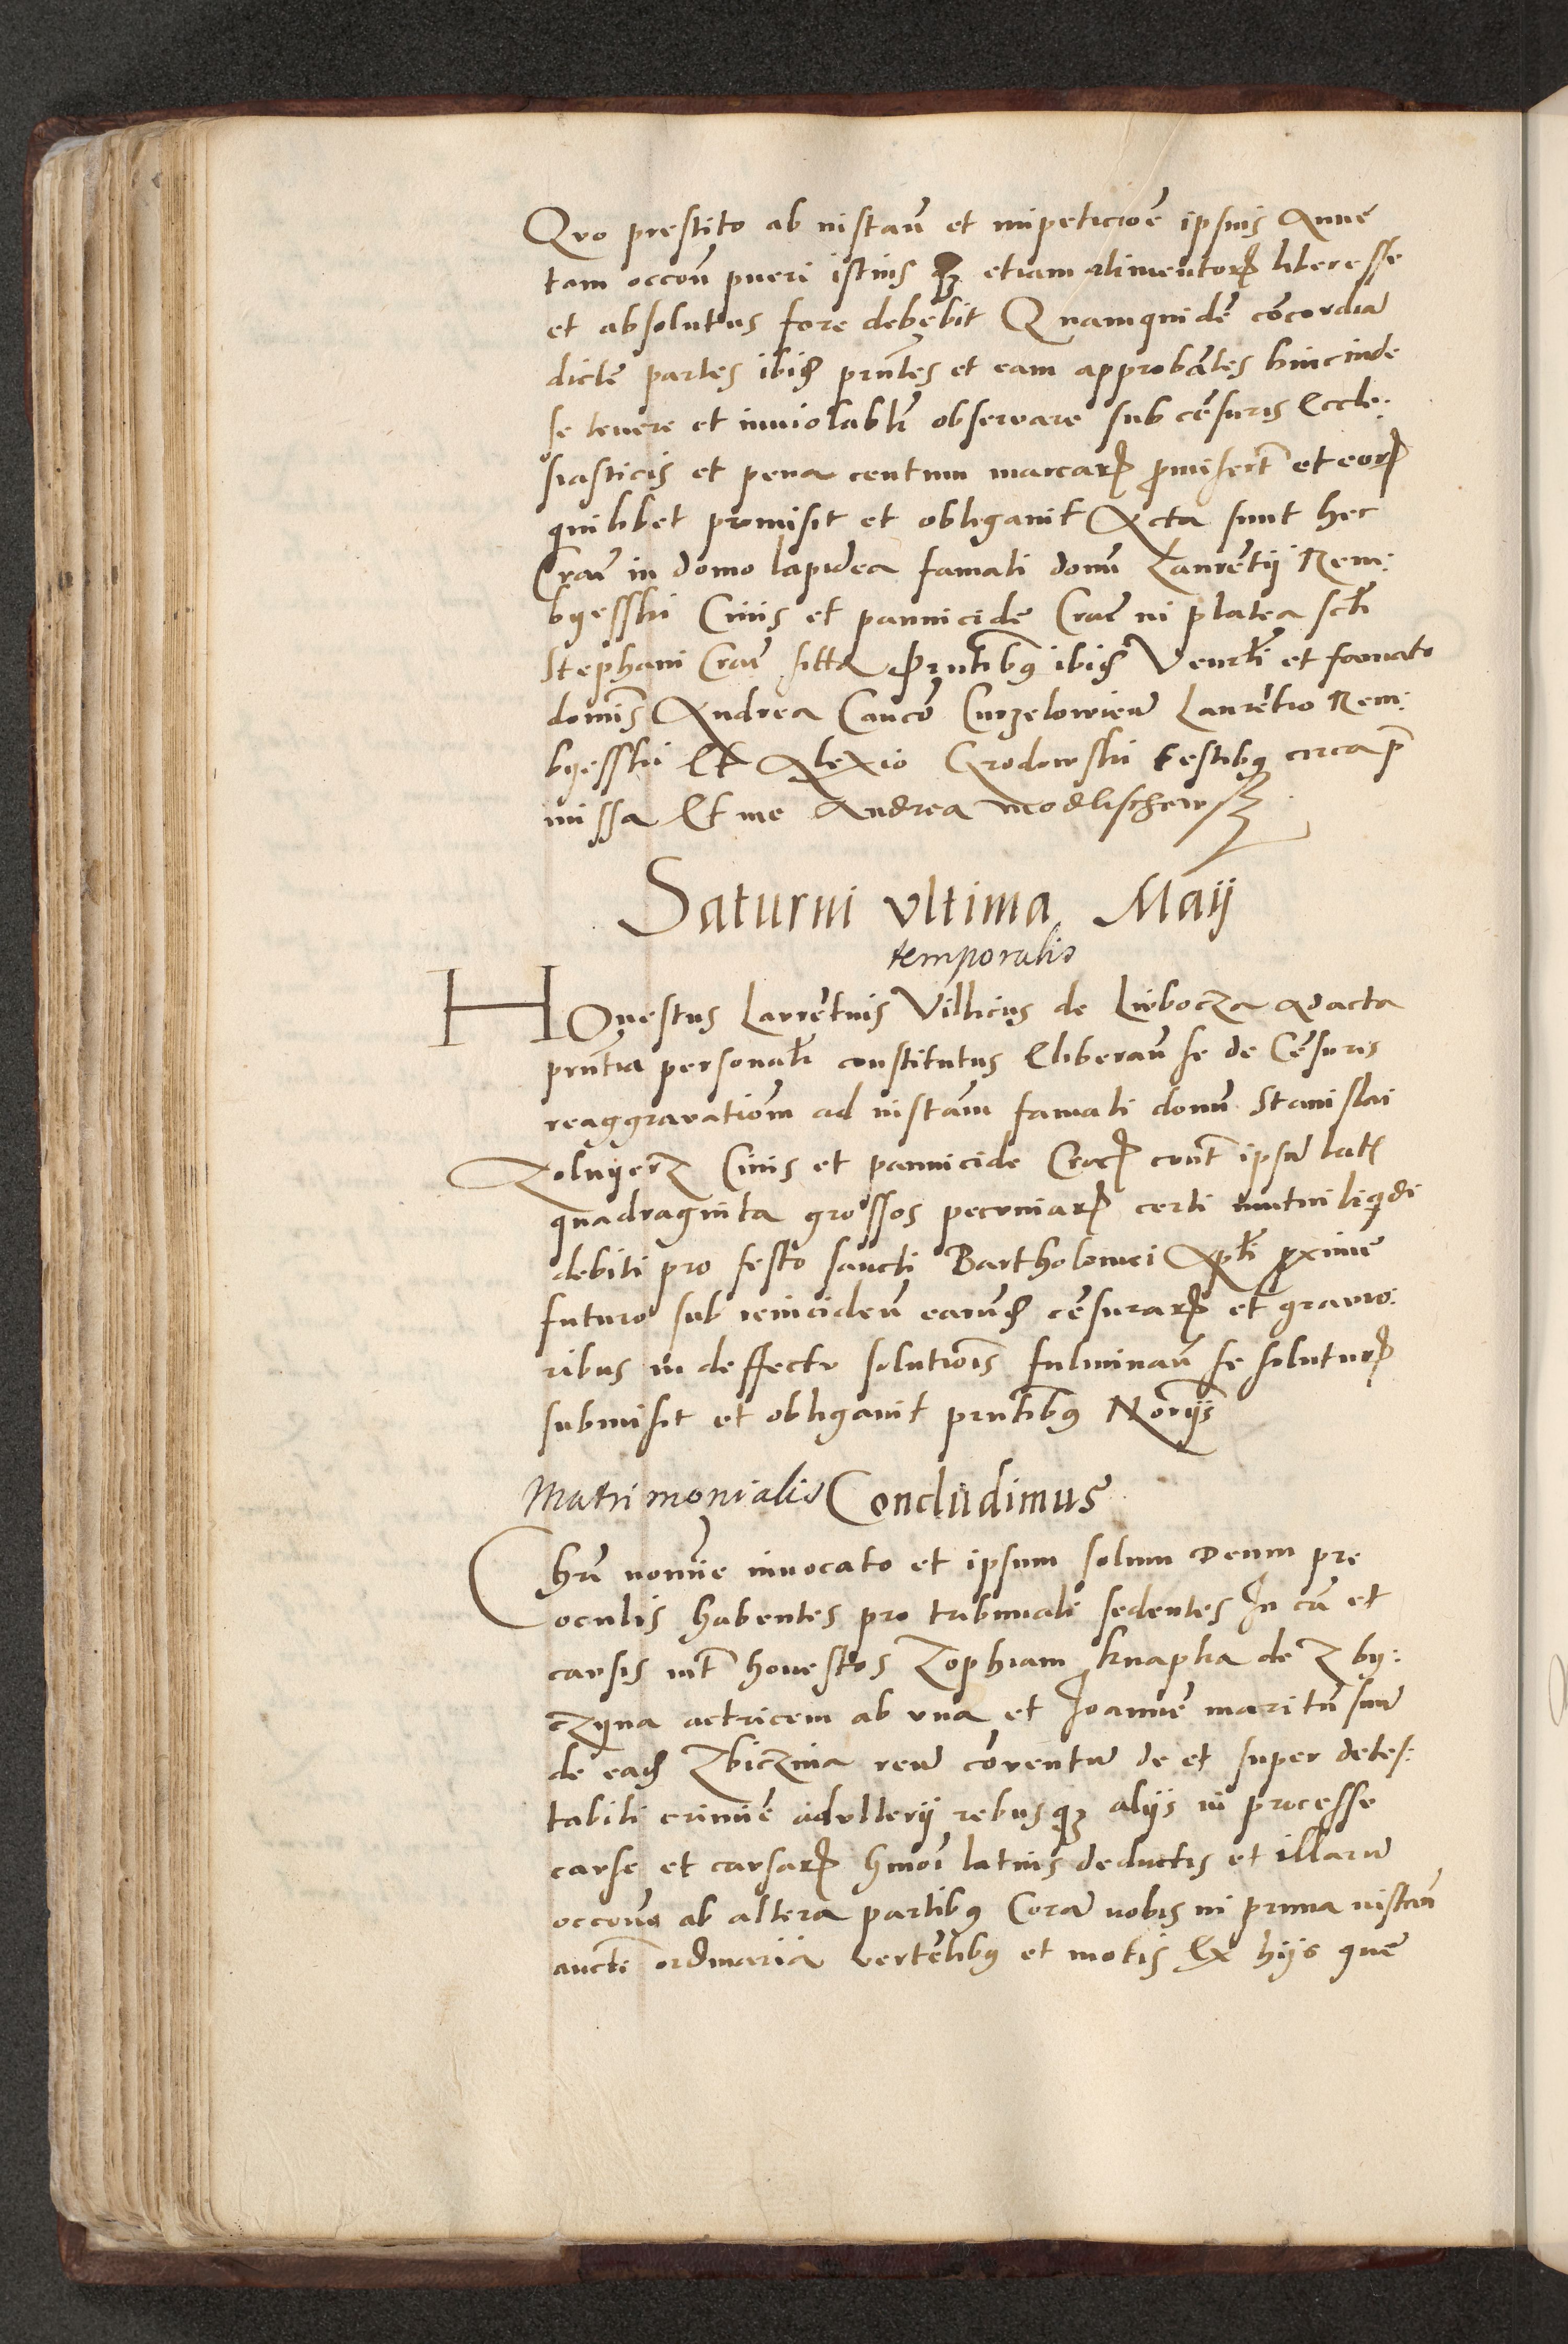 Quo prestito ab instan̄ et impeticiōe ipsius Anne
tam occōn pueri istius qȝ etiam alimentorꝝ liber esse
et absolutus fore debebit Quamquidē cōcordiā
dicte partes ibiđ pr̄ntes et eam approbātes hinc inde
se tenere et inuiolabłr obseruare sub cēsuris Eccle:
siasticis et pena centum marcarꝝ ꝓmisert̄ et eorꝝ
quilibet promisit et obligauit Acta sunt hec
Crac̄ in domo lapidea famati domī Laurētij Rem:
byesski Ciuis et pannicide Crac̄ in platea scti
Stephani Crac̄ sitta Prntibꝰ ibiđ Venrłi et famato
domīs Andrea Caucō Curzelowień Laurētio Rem:
byesski Et Alexio Grodowski testibꝰ circa p̄
missa Et me Andrea Modlischewsȝ
Saturni vltima Maij
temporalis
HOnestus Laurētius Villicus de Luboczza Ad acta
prn̄tia personałr constitutus Eliberań se de Cēsuris
reaggrauatiom̄ ad instām famati domī Stanislai
Zolnyerz Ciuis et pannicide Cracꝯ cont̄ ipsū latꝭ
quadraginta grossos pecuniarꝝ certi mutui liqdi
debiti pro festo sancti Bartholomei Apłi ꝓxime
futuro sub reincideń earunđ cēsurarꝝ et grauio:
ribus in deffectu solutiōis fulminań se soluturꝝ
submisit et obligauit prntibꝰ Norijs
Matrimonialis Concludimus
Chrī nomīe inuocato et ipsum solum Deum pre
oculis habentes pro tribunali sedentes In cā et
causis int̄ honestos Zophiam Knapka de Zby:
czyna actricem ab vna et Joannē maritū suū
de eađ Zbiczina reum cōuentum de et super detes:
tabili crimīe adulterij rebusqȝ alijs in processe
cause et causarꝝ hmōi latius deductis et illarum
occōne ab altera partibꝰ Coram nobis in prima instan̄
auctē ordinaria vertētibꝰ et motis Ex hijs que